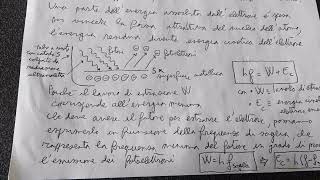 Una parte dell'energia assorbita dall'elettrone è spesa
per vincere la forza attrattiva del nucleo dell'atomo,
l'energia residua diventa energia cinetica dell'elettrone
fotoni
fotoelettroni
superficie metallica
hf = W + Ec
con W = lavoro di estrazione
Ec = energia cinetica
Poiché il lavoro di estrazione W
corrisponde all'energia minima
che deve avere il fotone per estrarre l'elettrone, possiamo
esprimerlo in funzione della frequenza di soglia che
rappresenta la frequenza minima del fotone in grado di
l'emissione dei fotoelettroni W = h f soglia ⇒ Ec = h (f - f